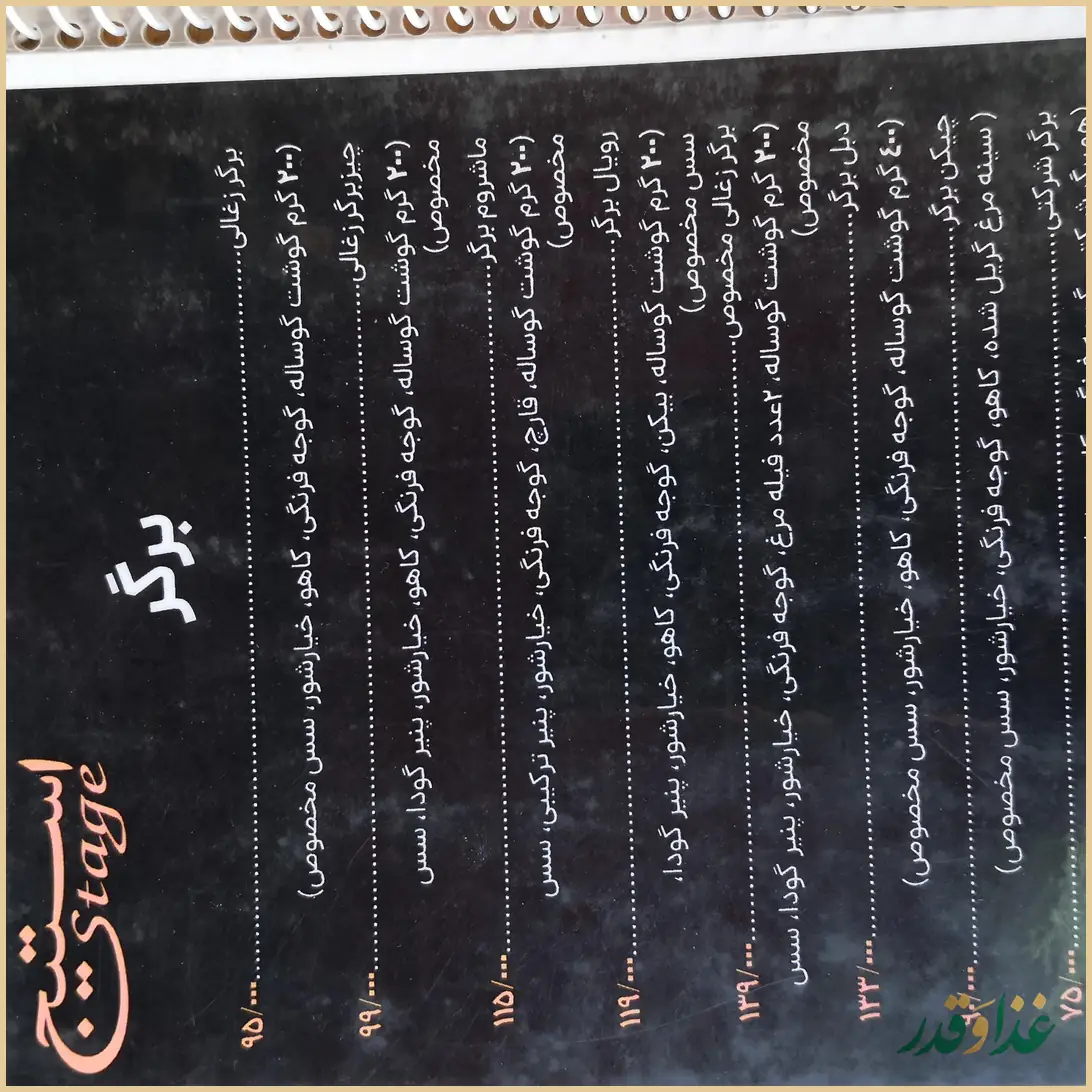 استیج
Stage
برگر
برگر زغالی ۹۵/۰۰۰
(۲۰۰ گرم گوشت گوساله، گوجه فرنگی، کاهو، خیارشور، سس مخصوص)
چیزبرگر زغالی ۹۹/۰۰۰
(۲۰۰ گرم گوشت گوساله، گوجه فرنگی، کاهو، خیارشور، پنیر گودا، سس
مخصوص)
ماشروم برگر ۱۱۵/۰۰۰
(۲۰۰ گرم گوشت گوساله، قارچ، گوجه فرنگی، خیارشور، پنیر ترکیبی، سس
مخصوص)
رویال برگر ۱۱۹/۰۰۰
(۲۰۰ گرم گوشت گوساله، بیکن، گوجه فرنگی، کاهو، خیارشور، پنیر گودا،
سس مخصوص)
برگر زغالی مخصوص ۱۳۹/۰۰۰
(۲۰۰ گرم گوشت گوساله، ۲عدد فیله مرغ، گوجه فرنگی، خیارشور، پنیر گودا، سس
مخصوص)
دبل برگر ۱۳۳/۰۰۰
(۴۰۰ گرم گوشت گوساله، گوجه فرنگی، کاهو، خیارشور، سس مخصوص)
چیکن برگر
(سینه مرغ گریل شده، کاهو، گوجه فرنگی، خیارشور، سس مخصوص)
برگر شرکتی ۷۵/۰۰۰
غذا و قدر